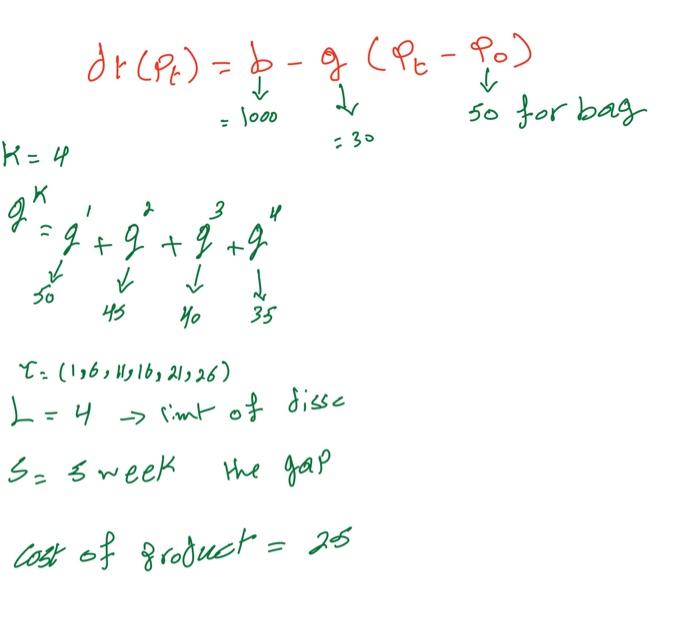 dr(Pt) = b - g (Pt - Po)
= 1000
= 30
50 for bag
K = 4
q^K = q^1 + q^2 + q^3 + q^4
50 45 40 35
τ = (1,6, 11,16, 21,26)
L = 4 → limt of dissc
S = 5 week the gap
cost of product = 25